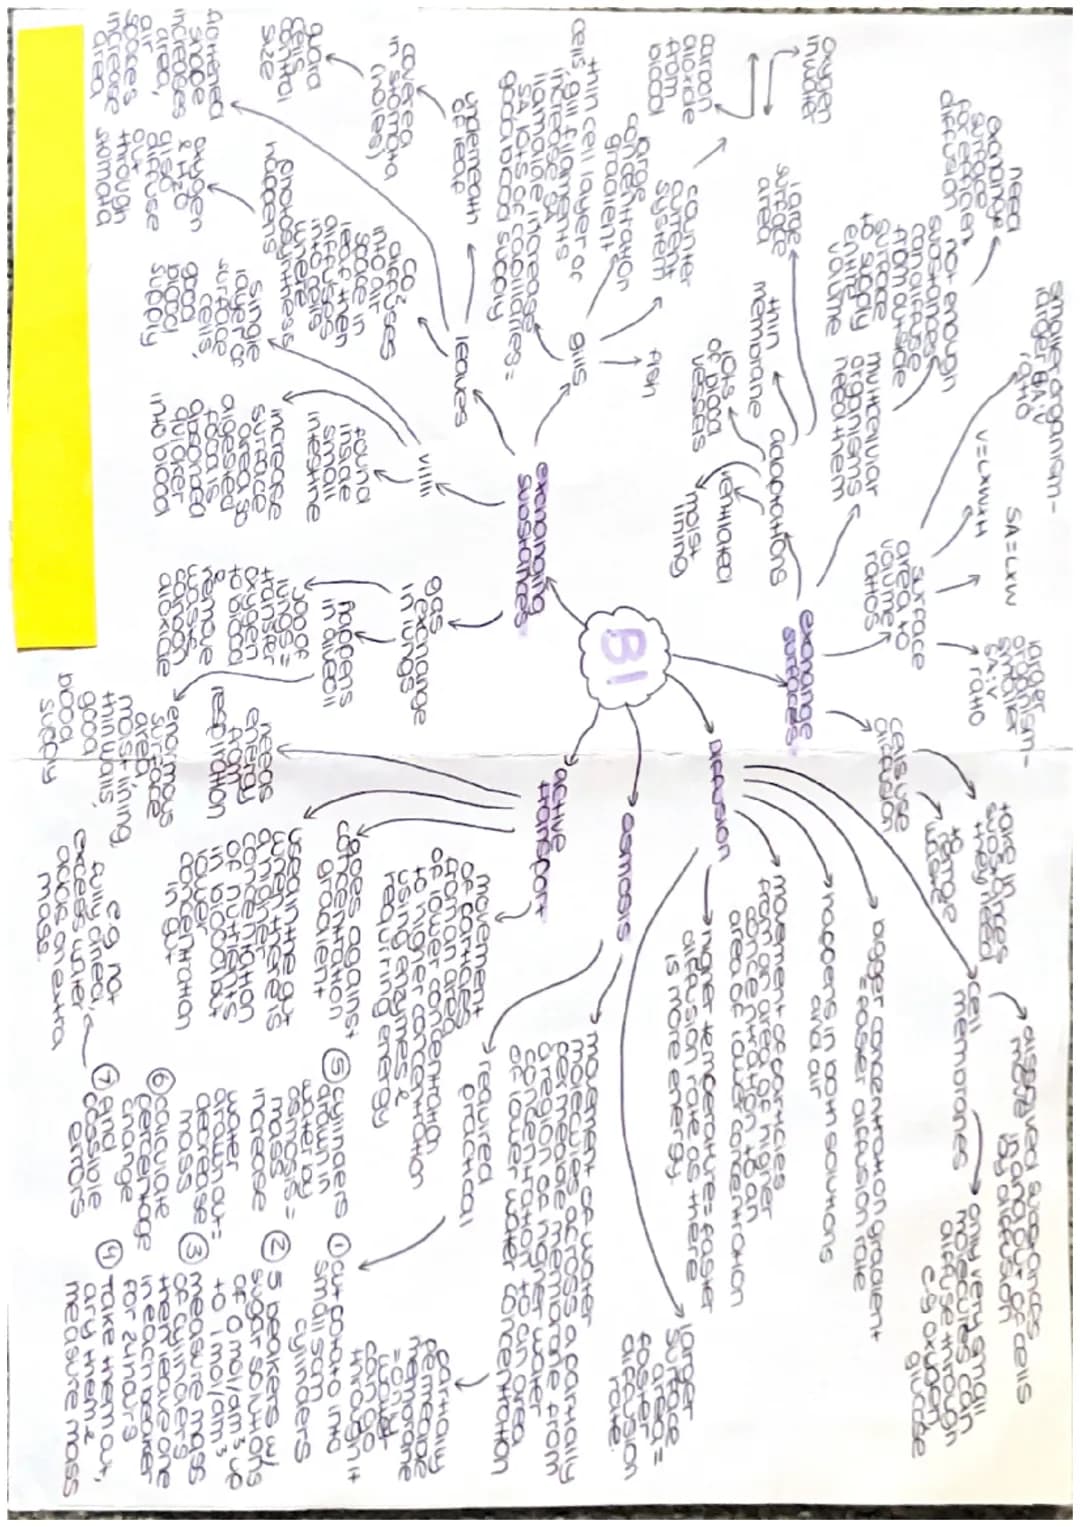 B1
exchange
surfaces
surface
area to
volume
ratios
smaller organism-
larger SA:V
ratio
V=LxWxH
SA=LxW
larger
organism-
smaller
SA:V
ratio
cells use
diffusion
take in
substances
they need
to remove
waste
multicellular
organisms
need them
not enough
substances
can diffuse
from outside
surface
to supply
entire
volume
need
exchange
surface
for efficient
diffusion
adaptations
large
surface
area
thin
membrane
lots
of blood
vessels
ventilated
moist
lining
Diffusion
cell
membranes
dissolved substances
move in and out of cells
by diffusion
only very small
molecules can
diffuse through
e.g oxygen
glucose
bigger concentration gradient
= faster diffusion rate
happens in both solutions
and air
movement of particles
from an area of higher
concentration to an
area of lower concentration
higher temperature = faster
diffusion rate as there
is more energy
larger
surface
area =
faster
diffusion
rate.
osmosis
movement of water
molecules across a partially
permeable membrane from
a region of higher water
concentration to an area
of lower water concentration
partially
permeable
membrane
= only
water
can go
through it
required
practical
① cut potato into
small 1cm
cylinders
② 5 beakers w/
sugar solutions
of 0 mol/dm³ up
to 1 mol/dm³
③ measure mass
of cylinders
then leave one
in each beaker
for 24 hours
④ Take them out,
dry them &
measure mass
⑤ cylinders
drawn in
water by
osmosis =
mass
increase
water
drawn out =
decrease
mass
⑥ calculate
percentage
change
⑦ and
possible
errors
e.g. not
fully dried,
excess water
adds an extra
mass.
active
transport
movement
of particles
from an area
of lower concentration
to higher concentration
using enzymes &
requiring energy
goes against
concentration
gradient
used in the gut
when there is
a higher
concentration
of nutrients
in blood but
lower
concentration
in gut
needs
energy
from
respiration
exchanging
substances
gas
exchange
in lungs
happens
in alveoli
job of
lungs =
transfer
oxygen
to blood
&
remove
waste
carbon
dioxide
enormous
surface
area
moist lining,
thin walls,
good
blood
supply
villi
found
inside
small
intestine
increase
surface
area so
digested
food is
absorbed
quicker
into blood
single
layer of
surface
cells,
good
blood
supply
leaves
CO₂
diffuses
into air
space in
leaf then
diffuses
into cells
where
photosynthesis
happens
oxygen
& H₂O
also
diffuse
out
through
stomata
underneath
of leaf
covered
in stomata
(holes)
guard
cells
control
size
flattened
shape
increases
area,
air
spaces
increase
area,
gills
fish
counter
current
system
oxygen
in water
carbon
dioxide
from
blood
large
concentration
gradient
thin cell layer or
cells, gill filaments
increase
&
lamellae increase
SA, lots of capillaries =
good blood supply